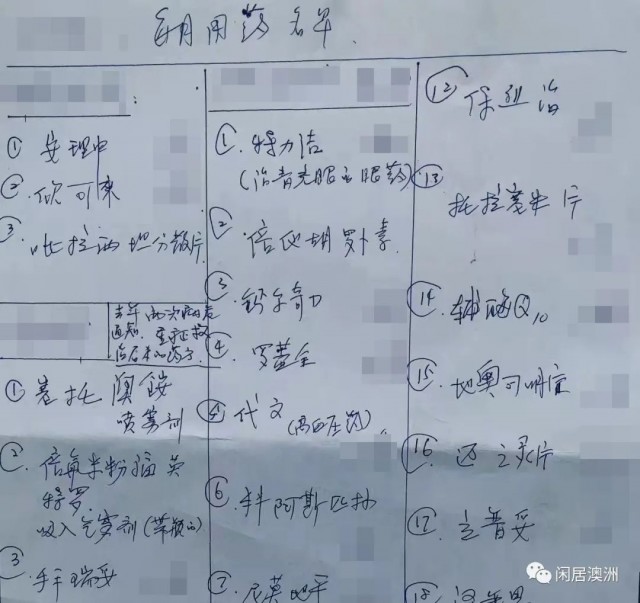 每月用药名单
① 安理申
② 欣可来
③ 吡拉西坦分散片
去年
通知
① 噻托溴铵
喷雾剂
② 倍氯米
特罗
吸入气雾剂
③ 瑞妥
① 特力洁
(治青光眼 眼药)
② 倍他胡萝卜素
③ 钙尔奇D
④ 罗盖全
⑤ 代文 (高血压药)
⑥ 阿斯匹林
⑦ 尼莫地平
⑫ 保列治
⑬ 托拉塞米片
⑭ 辅酶Q10
⑮ 地奥司明
⑯ 迈之灵片
⑰ 立普妥
⑱
闲居澳洲